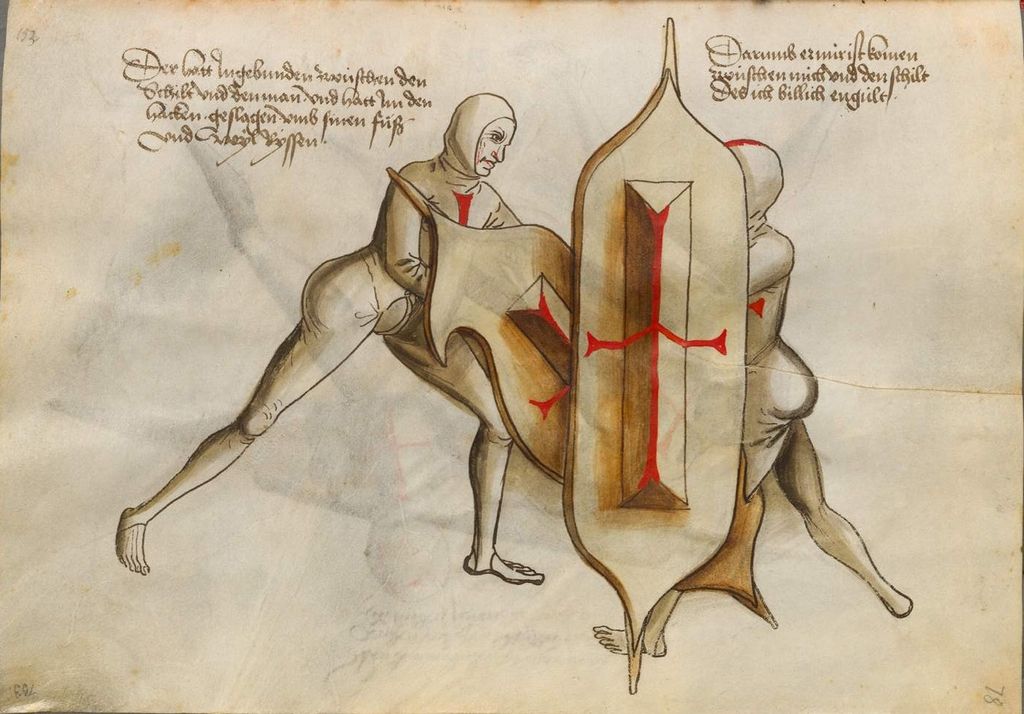 Der hatt Ingebunden zwüschen den
Schilt und den man und hatt Im den
hacken geslagen umb sinen füß
und Weyl Ryssen
Darumb er mir ist komen
zwüschen mich und den schilt
Des ich billich engült